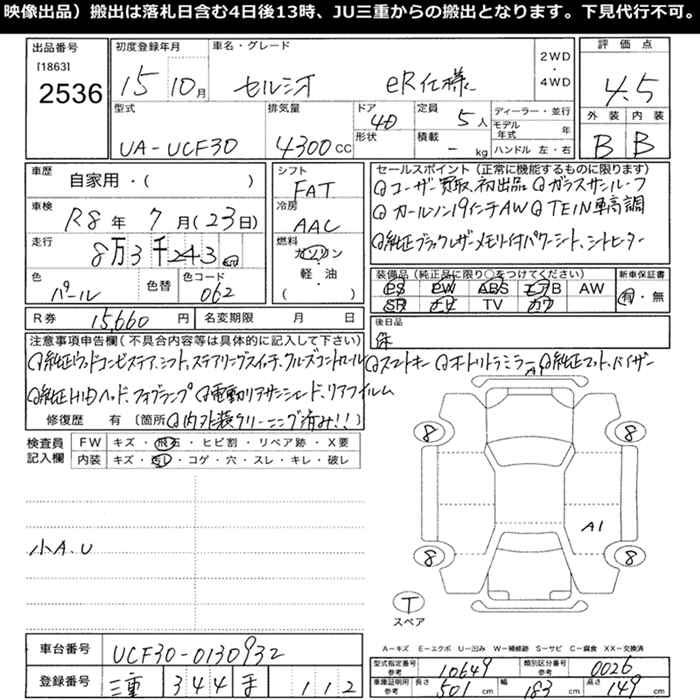 映像出品）搬出は落札日含む4日後13時、JU三重からの搬出となります。下見代行不可。
出品番号
[1863]
2536
初度登録年月
15 10月
車名・グレード
セルシオ eR仕様
2WD
・
4WD
評価点
4.5
型式
UA-UCF30
排気量
4300CC
ドア
4D
形状
定員
5人
積載
- kg
ディーラー・並行
モデル年式 年
ハンドル 左・右
外装 内装
B B
車歴
自家用・( )
車検
R8年 7月(23日)
走行
8万3千243
色
パール
色替
色コード
062
シフト
FAT
冷房
AAC
燃料
ガソリン
・
軽・油
( )
セールスポイント（正常に機能するものに限ります）
◎ユーザー買取、初出品 ◎ガラスサンルーフ
◎カールソン19インチAW ◎TEIN車高調
◎純正ブラックレザーメモリ付パワーシート、シートヒーター
装備品（純正品に限り○をつけてください）
PS PW ABS エアB AW
SR ナビ TV カワ
新車保証書
有・無
R券 15,660円
名変期限 月 日
後日品
保
注意事項申告欄（不具合内容等は具体的に記入して下さい）
◎純正ウッドコンビステア、シフト、ステアリングスイッチ、クルーズコントロール ◎スマートキー ◎オートリトラミラー ◎純正マット、バイザー
◎純正HIDヘッド、フォグランプ ◎電動リアサンシェード、リアフィルム
修復歴 有 (箇所 ◎内外装クリーニング済み!!)
検査員
記入欄
FW キズ・飛石・ヒビ割・リペア跡・X要
内装 キズ・汚レ・コゲ・穴・スレ・キレ・破レ
小A.U
A1
8 8
A1
8 8
T
スペア
A－キズ E－エクボ U－凹み W－補修跡 S－サビ C－腐食 XX－交換済
車台番号
UCF30-0130932
登録番号
三重 344 ま 112
型式指定番号
参考
10649
類別区分番号
参考
0026
車庫証明用
参考
長さ 501cm 幅 183cm 高さ 149cm